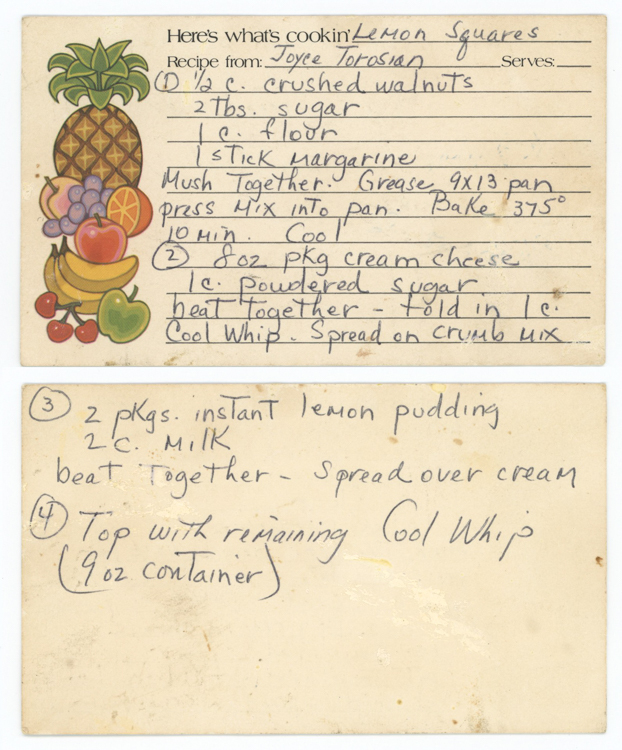 Here's what's cookin' Lemon Squares
Recipe from: Joyce Torosian Serves:
① 1/2 c. crushed walnuts
2 tbs. sugar
1 c. flour
1 stick margarine
Mush Together. Grease 9x13 pan
press mix into pan. Bake 375°
10 min. Cool
② 8 oz pkg cream cheese
1 c. powdered sugar
beat together - fold in 1 c.
Cool Whip. Spread on crumb mix
③ 2 pkgs. instant lemon pudding
2 c. milk
beat together - Spread over cream
④ Top with remaining Cool Whip
(9 oz container)